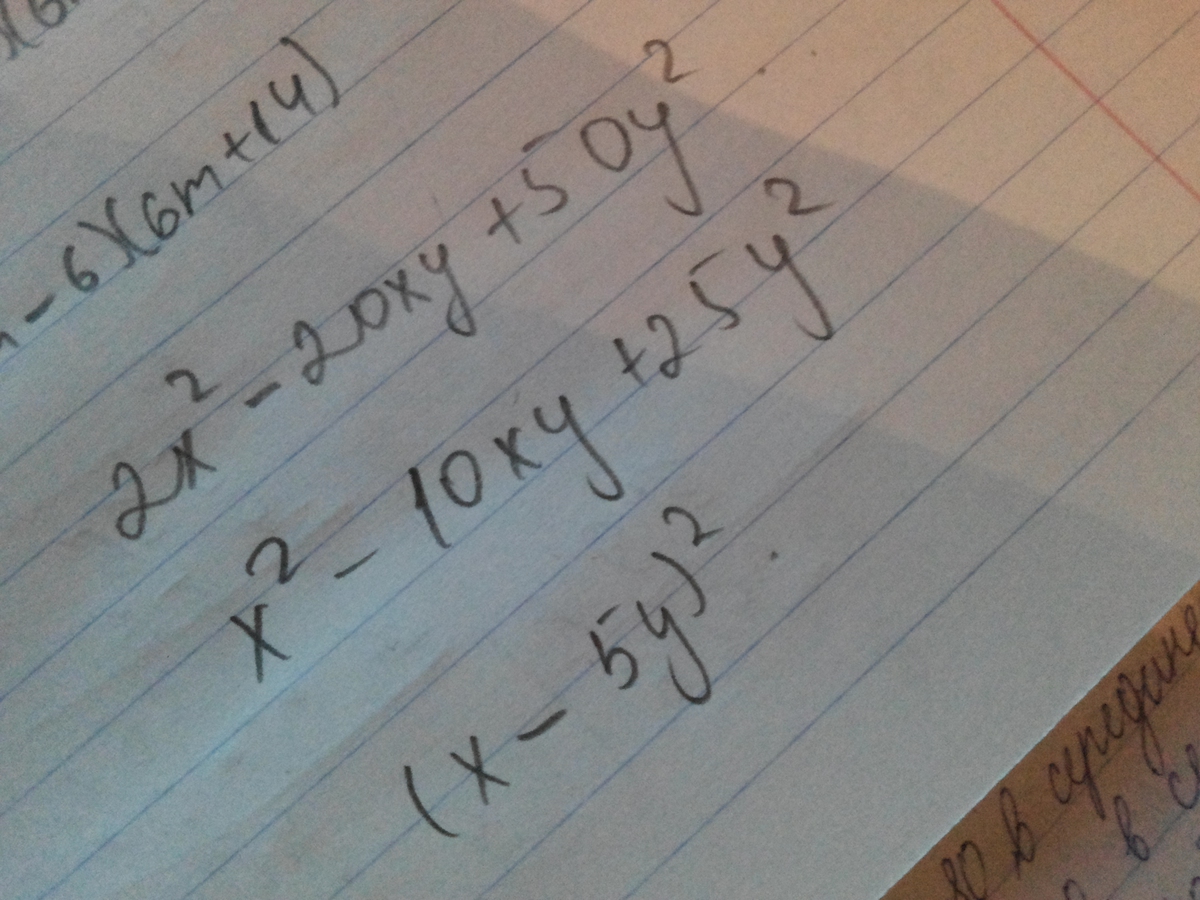 - 6)(6m+14)
2x² - 20xy + 50y²
x² - 10xy + 25y²
(x - 5y)²
в средине
в